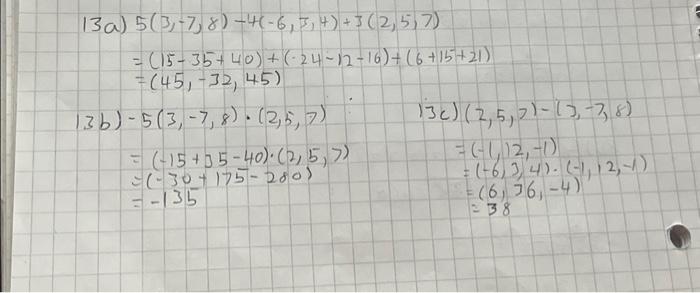 13a) 5(3,-7,8) -4(-6,3,4)+3(2,5,7)
=(15-35+40)+(-24-12-16)+(6+15+21)
=(45,-32,45)
13b) -5(3,-7,8)·(2,5,7)
=(-15+35-40)·(2,5,7)
=(-30+175-280)
=-135
13c) (2,5,7)-(3,-7,8)
=(-1,12,-1)
=(-6,3,4)·(-1,12,-1)
=(6,36,-4)
=38